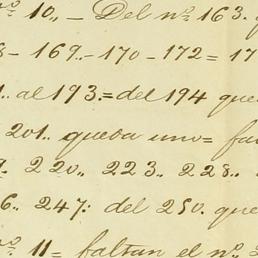 nº 10,, - Del nº 163.
8 - 169.. - 170 - 172 = 17
1.. al 193. = del 194 que
201.. queda uno = fal
9. 220.. 223.. 228..
6.. 247: del 250. que
nº 11 = faltan el nº. 2